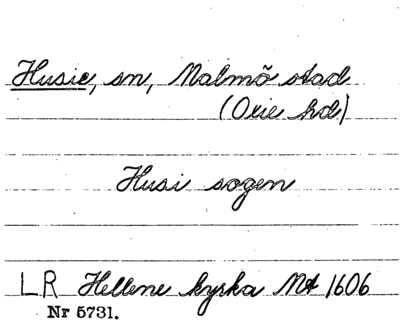 Husie, sn, Malmö stad
(Oxie hd)
Husi sogen
LR Hellene kyrka
1606
Nr 5731.